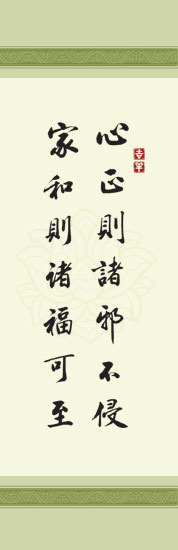 心正則諸邪不侵
家和則诸福可至